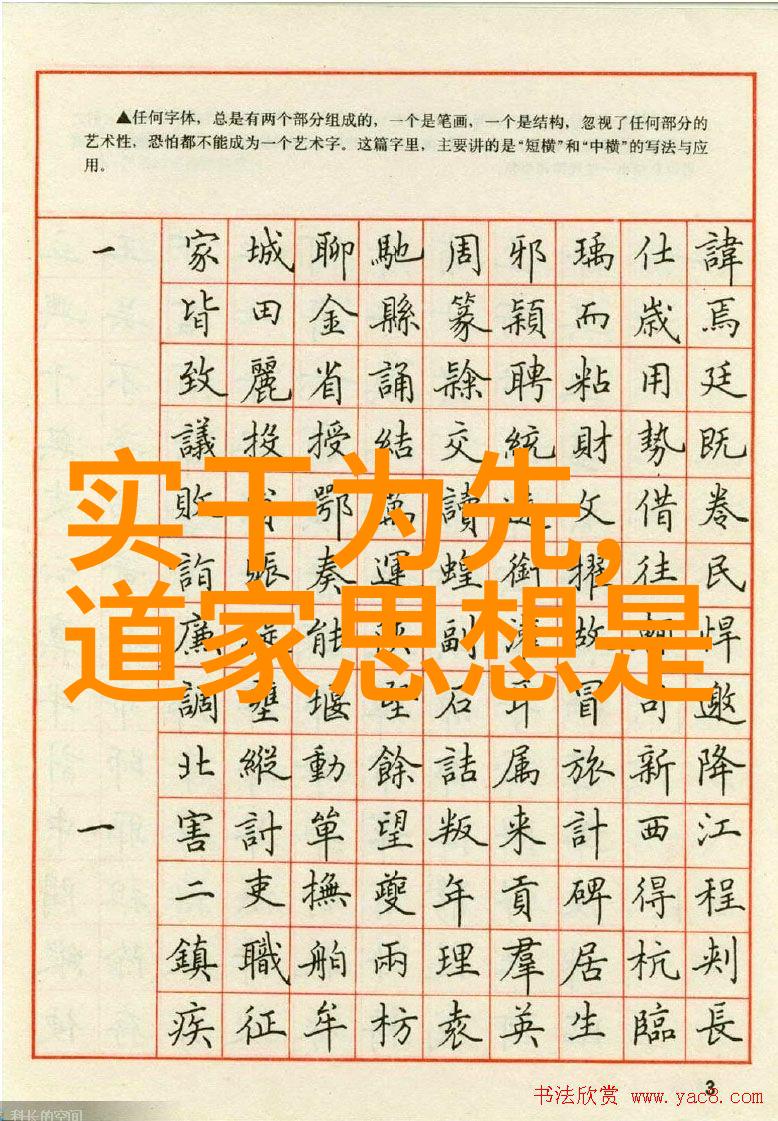 ▲任何字体，总是有两个部分组成的，一个是笔画，一个是结构，忽视了任何部分的
艺术性，恐怕都不能成为一个艺术字。这篇字里，主要讲的是“短横”和“中横”的写法与应
用。
一 家城聊馳周邪瑀仕諱
皆田金縣篆穎而歳焉
致麗省誦聘粘用廷
議投授結交統財勢既
敗鄂萬讀文借卷
詣賑奏運蝗銜擢往民
廉能副故悍
調壅堰堅石耳冒司邀
北縱動餘詰属旅新降
一 害討箪望叛来計西江
二吏撫夔年貢碑得程
鎮職舶兩理羣居杭刺
疾征牟枋袁英生臨長
实干为先,
道家思想是
3
书法欣赏 www.yac8.com
科长的空间